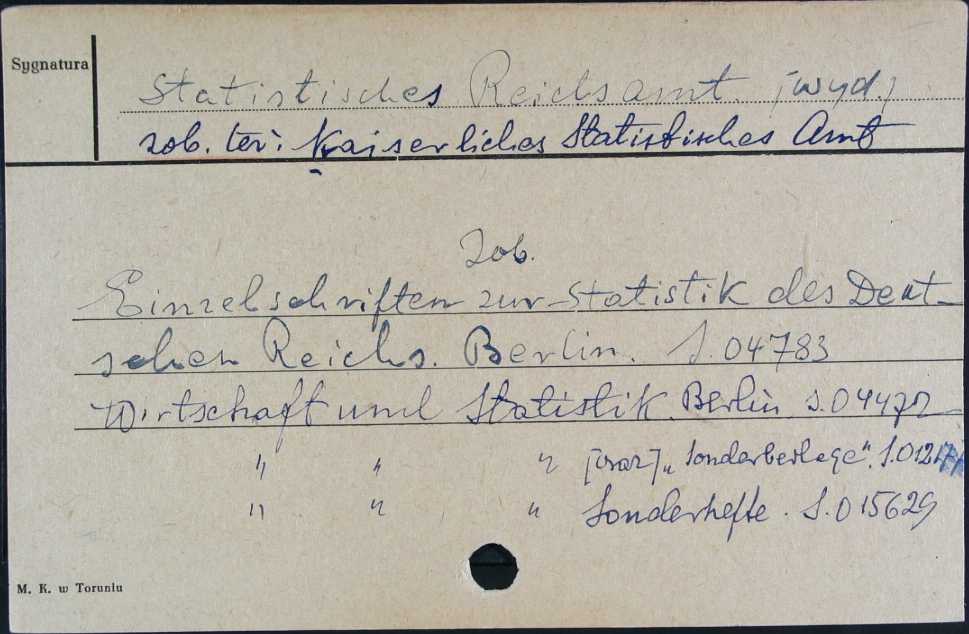 Sygnatura
Statistisches Reichsamt. [wyd.]
zob. też: Kaiserliches Statistisches Amt
Zob.
Einzelschriften zur Statistik des Deut-
schen Reichs. Berlin. S.04783
Wirtschaft und Statistik. Berlin. S.04472
" " " [oraz] "Sonderbeilage".
" " " Sonderhefte. S.015629
M. K. w Toruniu